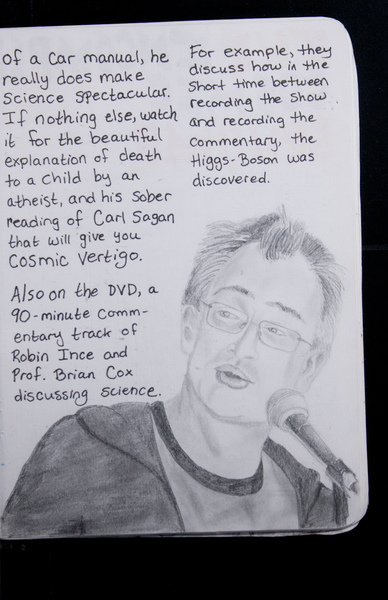 of a car manual, he
really does make
Science Spectacular.
If nothing else, watch
it for the beautiful
explanation of death
to a child by an
atheist, and his sober
reading of Carl Sagan
that will give you
cosmic vertigo.
Also on the DVD, a
90-minute comm-
entary track of
Robin Ince and
Prof. Brian Cox
discussing science.
For example, they
discuss how in the
short time between
recording the show
and recording the
commentary, the
Higgs-Boson was
discovered.